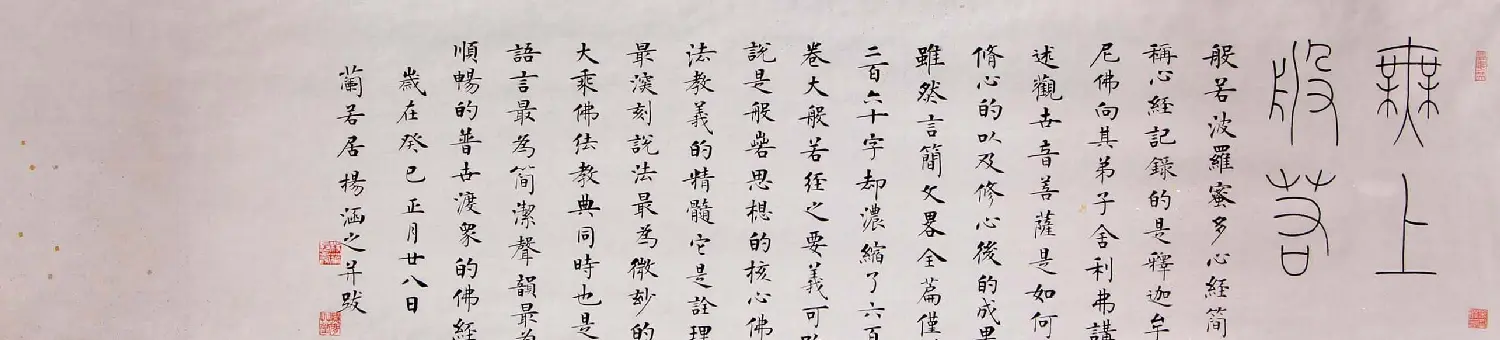 無上
般若
般若波羅蜜多心經簡
稱心經記錄的是釋迦牟
尼佛向其弟子舍利弗講
述觀世音菩薩是如何
脩心的以及修心後的成果
雖然言簡文畧全篇僅
二百六十字却濃縮了六百
卷大般若经之要義可
說是般若思想的核心佛
法教義的精髓它是詮理
最深刻説法最為微妙的
大乘佛法教典同時也是
語言最為简潔聲韻最為
順暢的普世渡眾的佛經
歲在癸巳正月廿八日
蘭若居楊涵之并跋